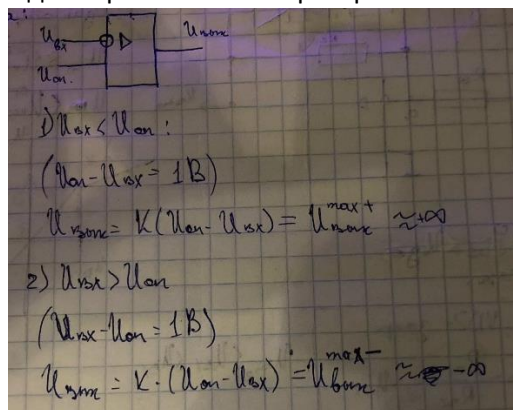 Uвх Uвых
Uоп.
1) Uвх < Uоп :
(Uоп - Uвх = 1 В)
Uвых = K(Uоп - Uвх) = Uвых^max+ ≈ +∞
2) Uвх > Uоп
(Uвх - Uоп = 1 В)
Uвых = K · (Uоп - Uвх) = Uвых^max- ≈ -∞